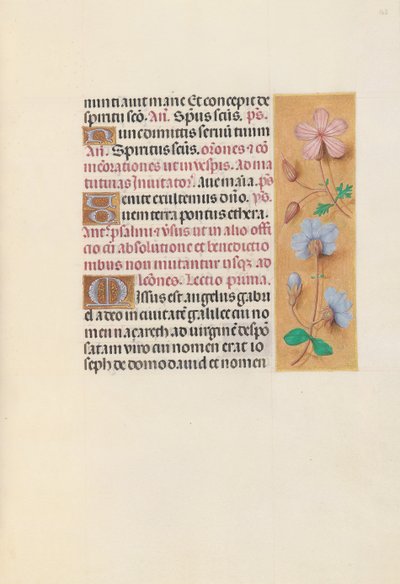 nuntiavit marie Et concepit de
spiritu scō. Añ. Spūs scūs. p̄s.
Nunc dimittis servum tuum
Añ. Spiritus scūs. orōnes et cō
mēorationes ut in vesp̄is. Ad ma
tutinas Invitator̄. Ave maria. p̄s
Venite exultemus dño. ẏo.
Quem terra pontus ethera.
Ant̄ psalmi et v̄sus ut in alio offi
cio cū absolutione et benedictio
nibus non mutantur usq̄z ad
lcōnes. Lectio prima.
Missus est angelus gabri
el a deo in civitatē galilee cui no
men nazareth ad virginē despō
satam viro cui nomen erat io
seph de domo david et nomen